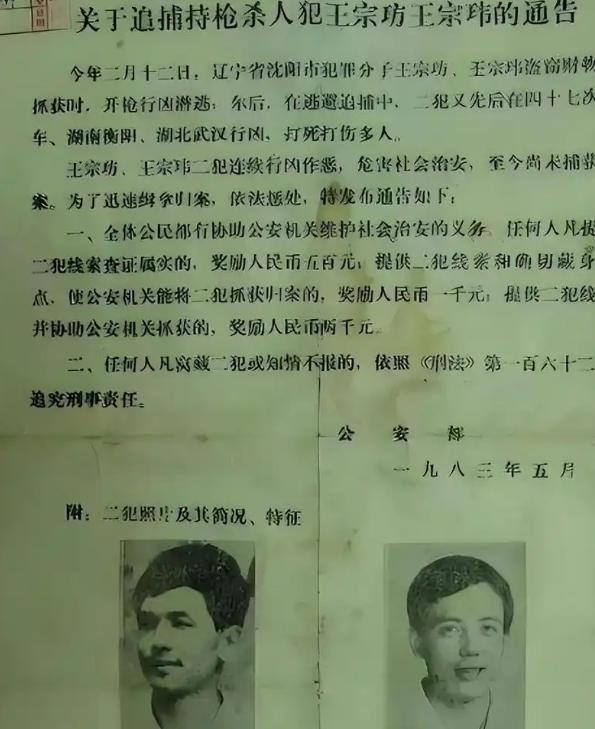 关于追捕持枪杀人犯王宗坊王宗玮的通告
今年二月十二日，辽宁省沈阳市犯罪分子王宗坊、王宗玮盗窃财物
抓获时，开枪行凶潜逃；尔后，在逃避追捕中，二犯又先后在四十七次
车、湖南衡阳、湖北武汉行凶，打死打伤多人。
王宗坊、王宗玮二犯连续行凶作恶，危害社会治安，至今尚未捕获
案。为了迅速缉拿归案，依法惩处，特发布通告如下：
一、全体公民都有协助公安机关维护社会治安的义务。任何人凡提
二犯线索查证属实的，奖励人民币五百元；提供二犯线索和确切藏身
点，使公安机关能将二犯抓获归案的，奖励人民币一千元；提供二犯线
并协助公安机关抓获的，奖励人民币两千元。
二、任何人凡窝藏二犯或知情不报的，依照《刑法》第一百六十二
追究刑事责任。
公安部
一九八三年五月
附：二犯照片及其简况、特征